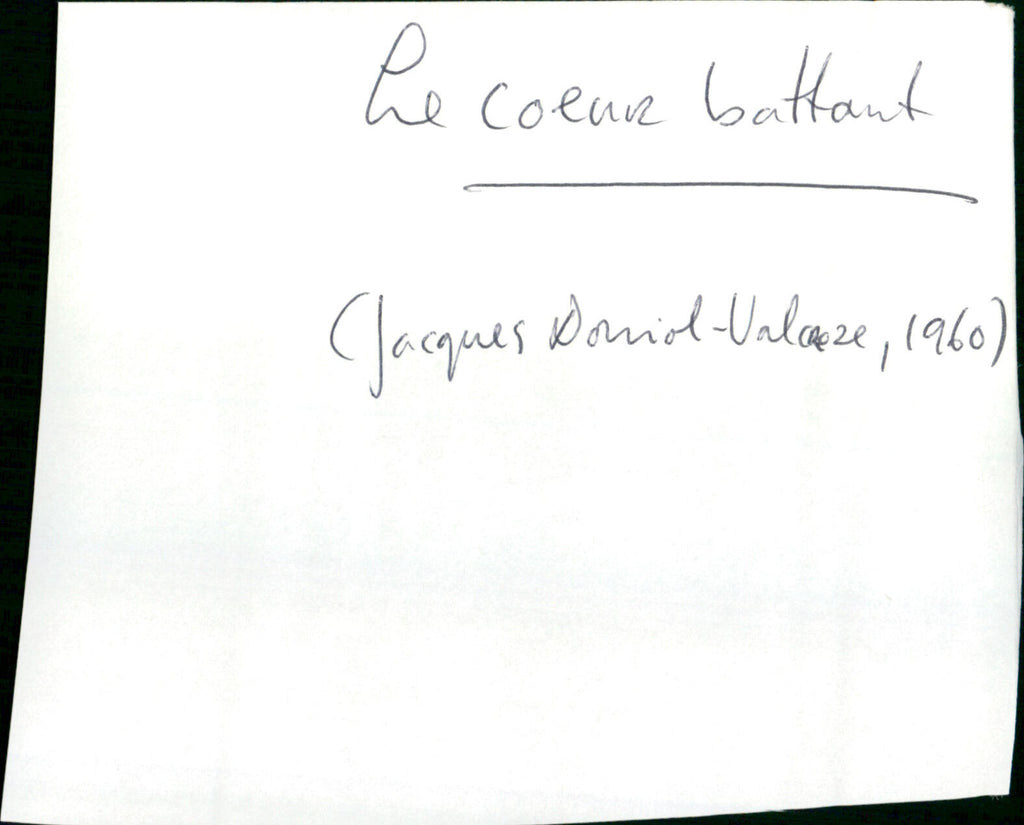 Le coeur battant
(Jacques Doniol-Valcroze, 1960)